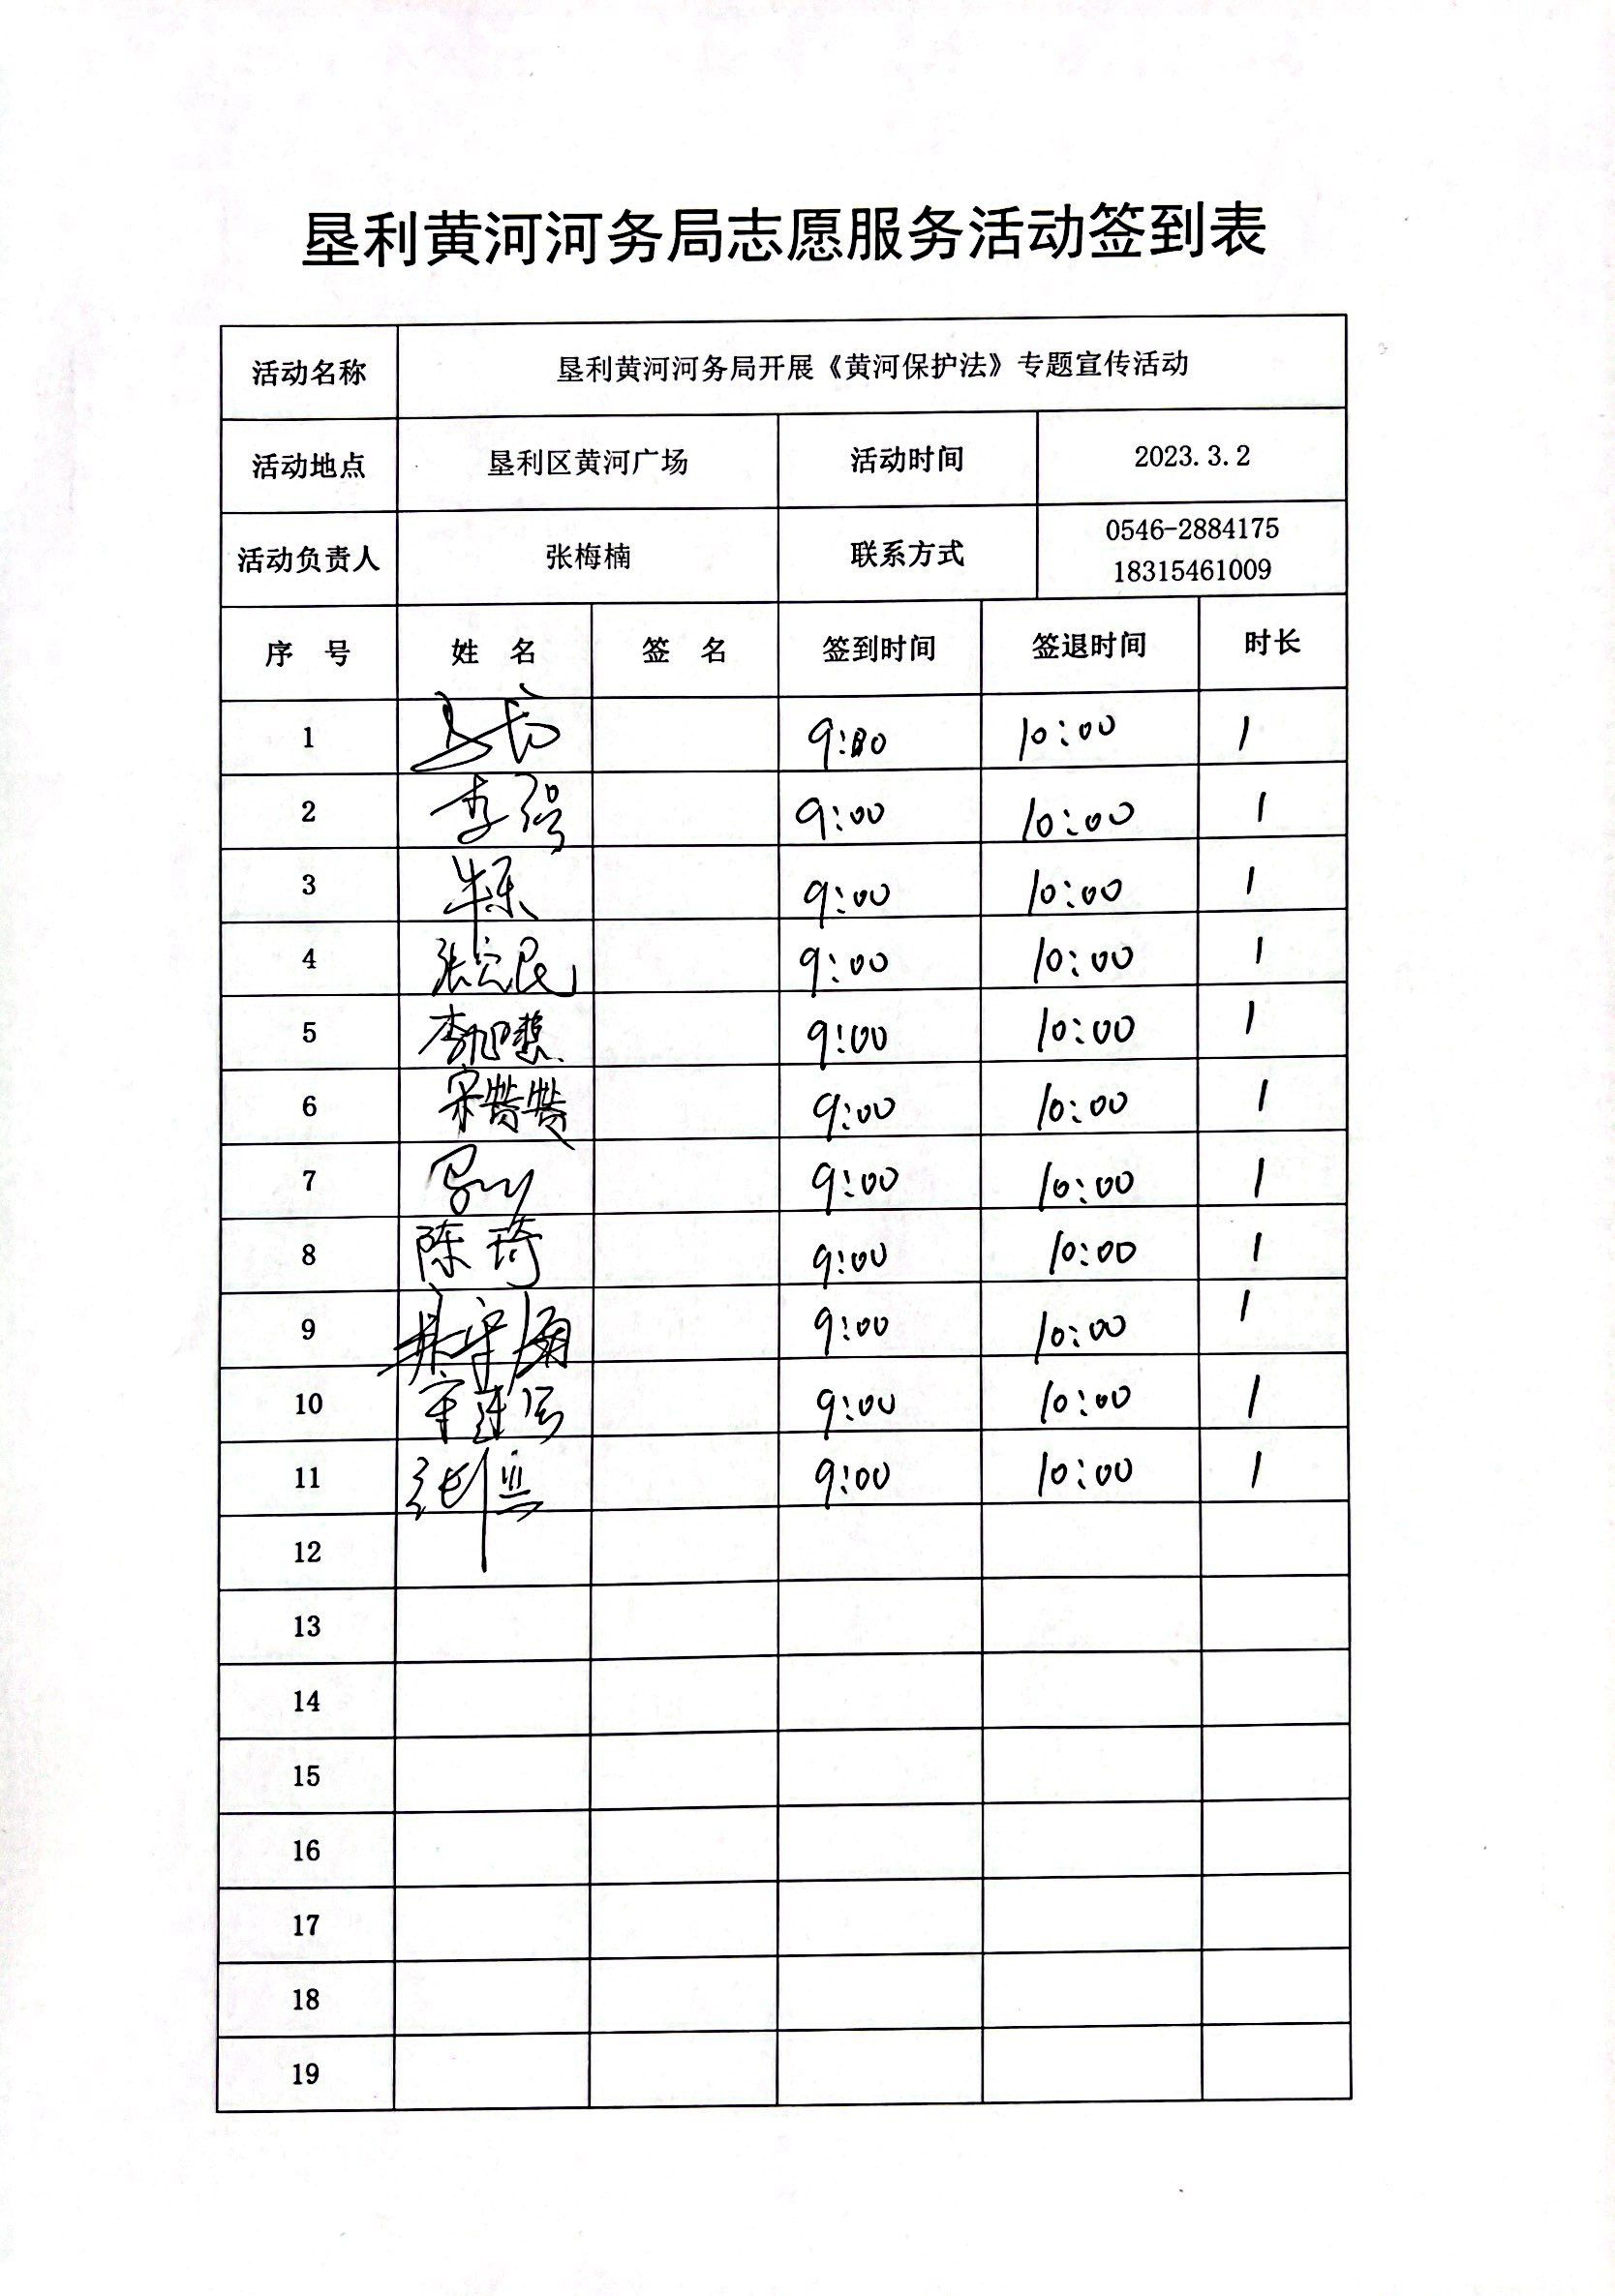 垦利黄河河务局志愿服务活动签到表
活动名称 垦利黄河河务局开展《黄河保护法》专题宣传活动
活动地点 垦利区黄河广场 活动时间 2023.3.2
活动负责人 张梅楠 联系方式 0546-2884175
18315461009
序 号 姓 名 签 名 签到时间 签退时间 时长
1 9:00 10:00 1
2 李强 9:00 10:00 1
3 牛乐 9:00 10:00 1
4 张宗民 9:00 10:00 1
5 李旭慧 9:00 10:00 1
6 宋赞赞 9:00 10:00 1
7 9:00 10:00 1
8 陈琦 9:00 10:00 1
9 9:00 10:00 1
10 9:00 10:00 1
11 9:00 10:00 1
12
13
14
15
16
17
18
19